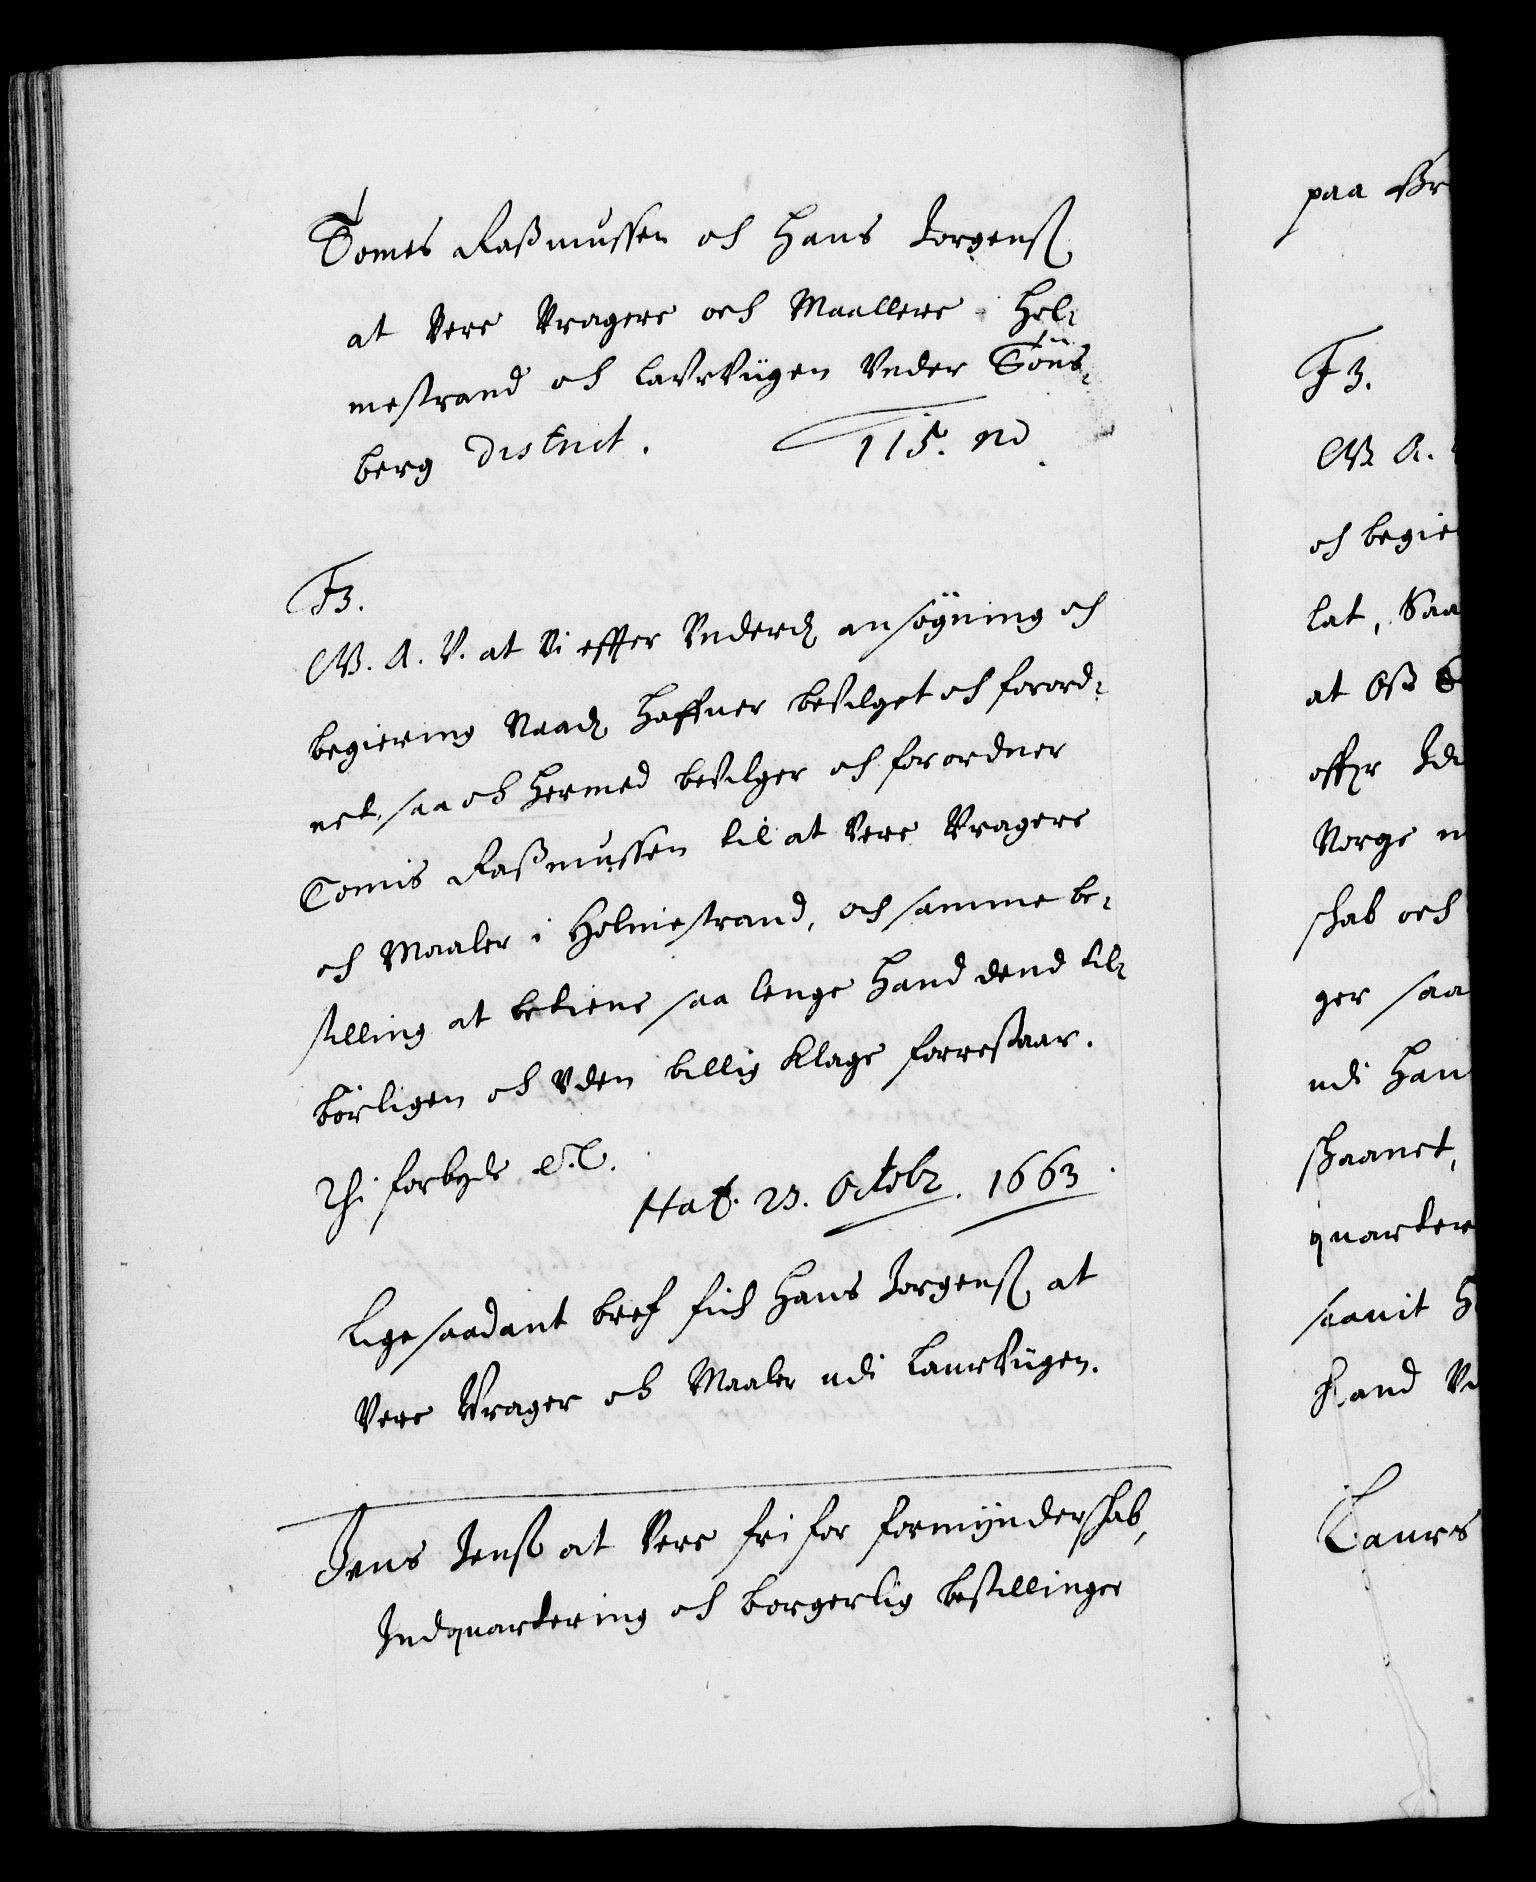 Tomes Rasmussen och Hans Jörgenß
at Vere Vragere och Maallere i Hol-
mestrand och LaurVügen Under Töns-
berg District. 115. No.
F3.
G. A. V. at Vi effter Underd ansögning och
begiering Naad Haffuer beVilget och forord-
net, saa och Hermed beVilger och forordner
Tomis Rasmussen til at Vere Vragere
och Maaler i Holmestrand, och samme be-
stilling at betiene saa lenge Hand dend til-
börligen och Uden billig Klage forrestaar.
Thi forbyde etc.
Haf. 23. Octobr. 1663.
Lige saadant bref fich Hans Jorgenß at
Vere Vrager och Maaler udi LaurVügen.
Jens Jenß at Vere fri for formÿnderschab,
Indquartering och borgerlig bestillinger
paa
F3.
G. A.
och begie
lat, Saa
at Oß
offr
Norge
schab och
ger saa
udi Han
skaanet,
quarter
samt
Hand
Laurs